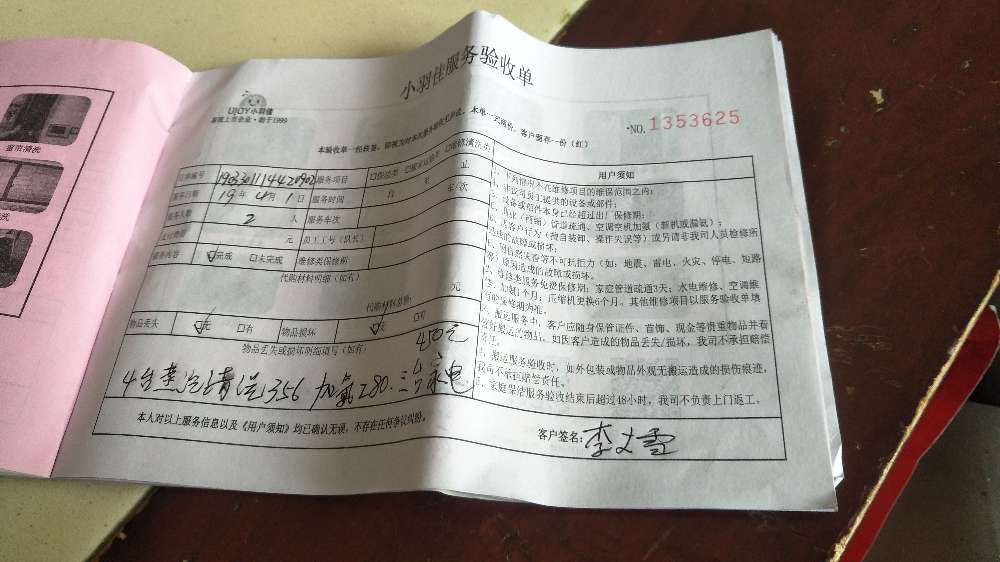 窗帘清洗
洗
小羽佳服务验收单
UJOY小羽佳
家政上市企业·始于1999
·NO.1353625
本验收单一经签署，即视为对本次服务验收无异议，本单一式两份，客户留存一份（红）
订单编号
服务项目 □保洁类 □维修清洗类
服务日期 19年4月1日 服务时间
服务人数 2 人 服务车次 车/次
元 员工工号（队长）
服务内容 完成 □未完成 维修类保修期
代购材料明细（如有）
代购材料总额： 元
物品丢失 无 □有 物品损坏 无 □有
物品丢失或损坏明细填写（如有）
450元
4台蒸汽清洗356 加氟280.三台家电
本人对以上服务信息以及《用户须知》均已确认无误，不存在任何争议纠纷。
用户须知
1、下列情形不在维修项目的维保范围之内：
非我司员工提供的设备或部件；
设备或部件本身已经超过出厂保修期；
商业（商铺）管道疏通、空调空机加氟（新机或漏氟）；
因客户行为（擅自装卸、操作失误等）或另请非我司人员检修所
造成的故障或损坏；
因自然灾害等不可抗拒力（如：地震、雷电、火灾、停电、短路
等）原因造成的故障或损坏。
2、维修类服务免费保修期：家庭管道疏通3天；水电维修、空调维
修、加氟1个月；压缩机更换6个月。其他维修项目以服务验收单填
写的保修期为准。
3、搬运服务中，客户应随身保管证件、首饰、现金等贵重物品并看
管好搬运的物品。如因客户造成的物品丢失/损坏，我司不承担赔偿
责任。
4、搬运服务验收时，如外包装或物品外观无搬运造成的损伤痕迹，
我司不承担赔偿责任。
5、家庭保洁服务验收结束后超过48小时，我司不负责上门返工。
客户签名：李文雪